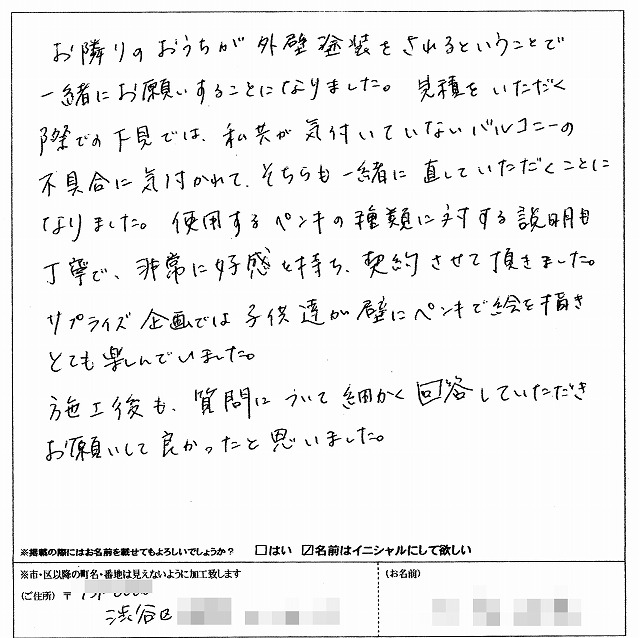 お隣りのおうちが外壁塗装をされるということで
一緒にお願いすることになりました。見積をいただく
際での下見では、私共が気付いていないバルコニーの
不具合に気付かれて、そちらも一緒に直していただくことに
なりました。使用するペンキの種類に対する説明も
丁寧で、非常に好感を持ち、契約させて頂きました。
サプライズ企画では子供達が壁にペンキで絵を描き
とても楽しんでいました。
施工後も、質問について細かく回答していただき
お願いして良かったと思いました。
※掲載の際にはお名前を載せてもよろしいでしょうか？ □はい ☑名前はイニシャルにして欲しい
※市・区以降の町名・番地は見えないように加工致します
(ご住所) 〒
渋谷区
(お名前)